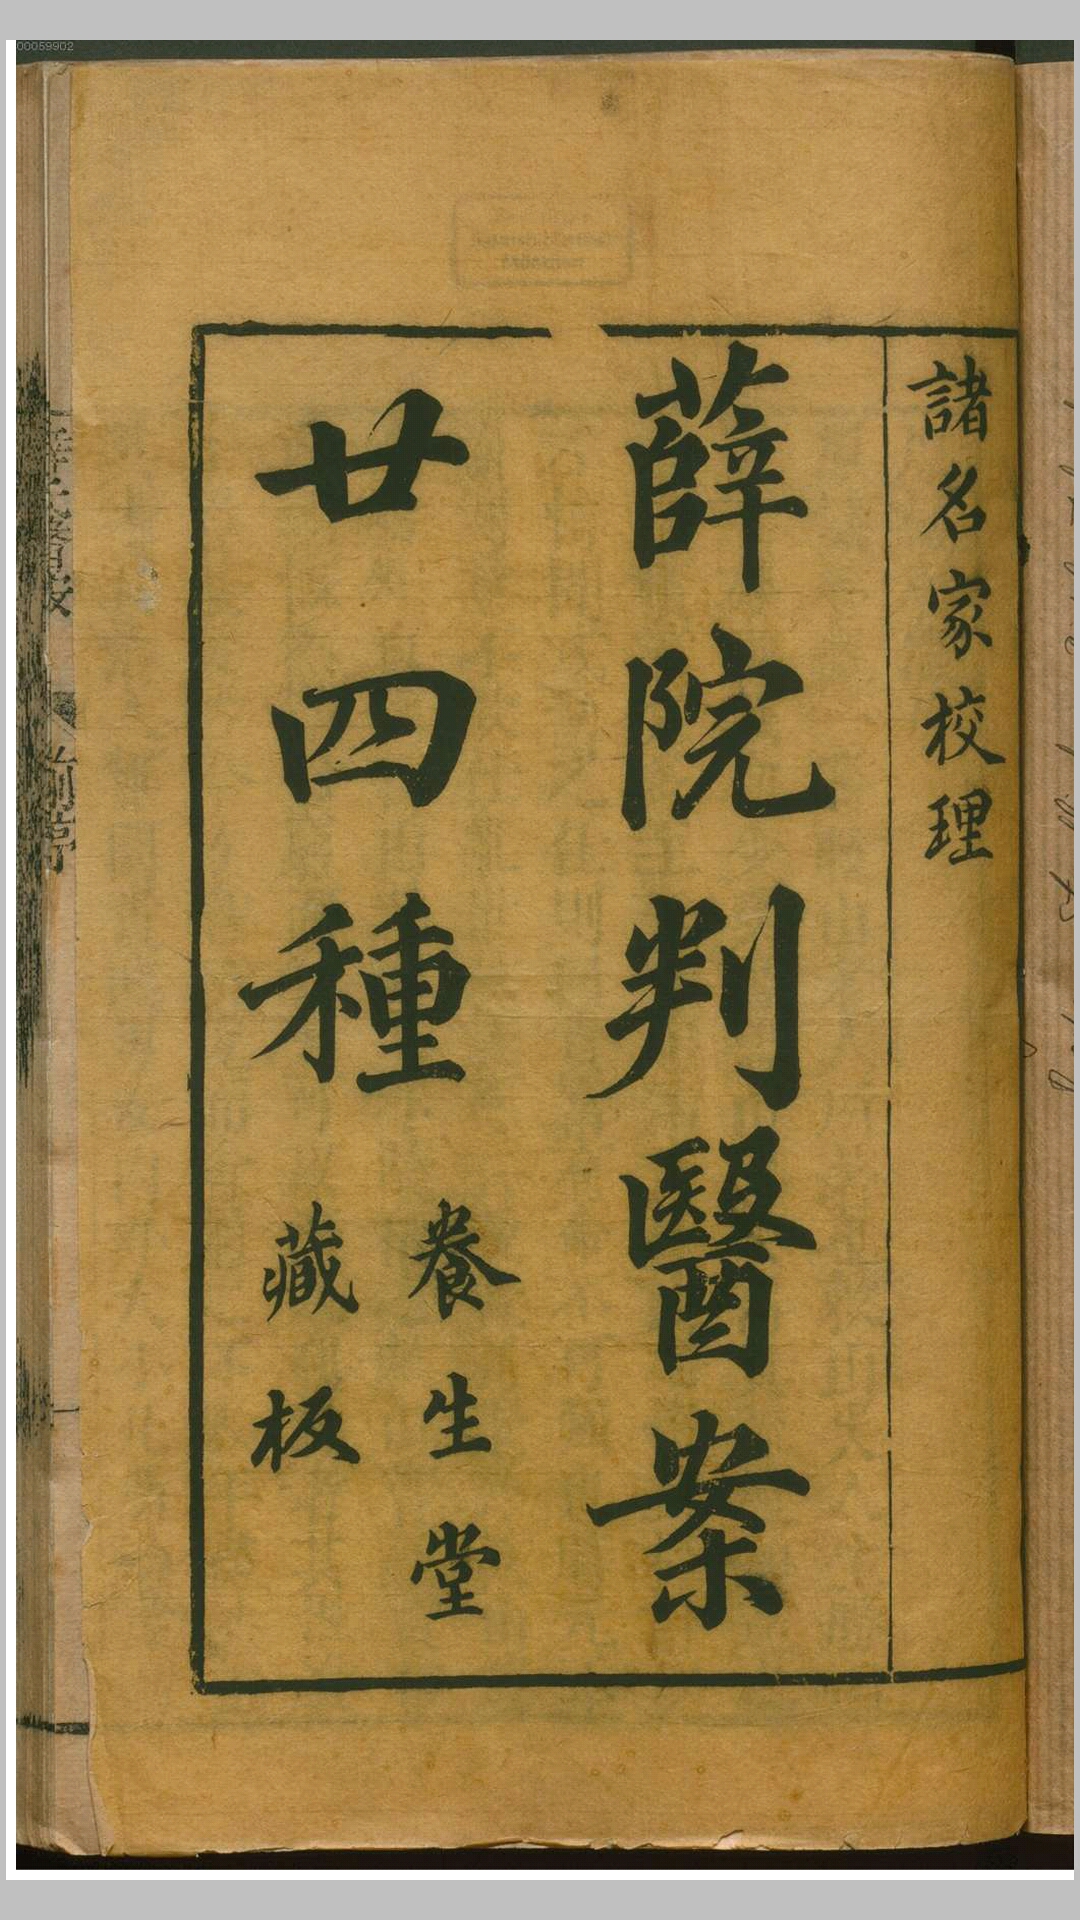 諸名家校理
薛院判醫案
廿四種
養生堂
藏板
00059902